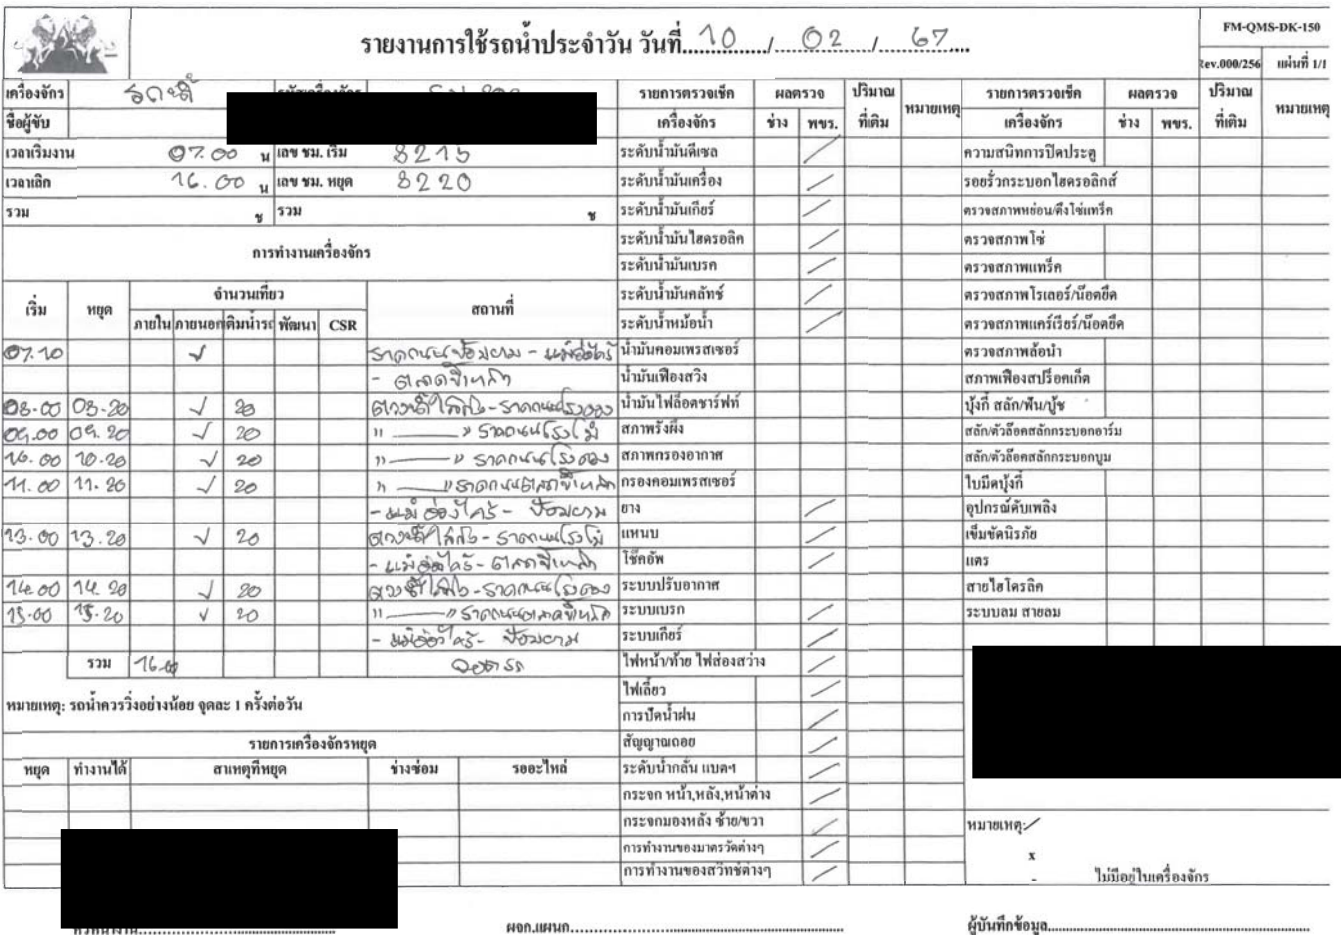 รายงานการใช้รถน้ำประจำวัน วันที่ 10 / 02 / 67
FM-QMS-DK-150
Rev.000/256 แผ่นที่ 1/1
เครื่องจักร รถน้ำ
ชื่อผู้ขับ
เวลาเริ่มงาน 07.00 น เลข ชม. เริ่ม 8215
เวลาเลิก 16.00 น เลข ชม. หยุด 8220
รวม ช รวม ช
การทำงานเครื่องจักร
เริ่ม หยุด จำนวนเที่ยว สถานที่
ภายใน ภายนอก เติมน้ำรถ พัฒนา CSR
07.10 ✓ ราดถนนป้อมยาม -
- ตลาดขี้เหล็ก
08.00 08.20 ✓ 20
09.00 09.20 ✓ 20 " ——— " ราดถนนโรงโม่
10.00 10.20 ✓ 20 " ——— "
11.00 11.20 ✓ 20 " ——— " ราดถนนตลาดขี้เหล็ก
- ป้อมยาม
13.00 13.20 ✓ 20 - ราดถนนโรงโม่
- ตลาดขี้เหล็ก
14.00 14.20 ✓ 20
15.00 15.20 ✓ 20 " ——— " ราดถนนตลาดขี้เหล็ก
- ป้อมยาม
รวม 16.00 จอดรถ
หมายเหตุ: รถน้ำควรวิ่งอย่างน้อย จุดละ 1 ครั้งต่อวัน
รายการเครื่องจักรหยุด
หยุด ทำงานได้ สาเหตุที่หยุด ช่างซ่อม รออะไหล่
รายการตรวจเช็ค ผลตรวจ ปริมาณ หมายเหตุ
เครื่องจักร ช่าง พขร. ที่เติม
ระดับน้ำมันดีเซล ⁄
ระดับน้ำมันเครื่อง ⁄
ระดับน้ำมันเกียร์ ⁄
ระดับน้ำมันไฮดรอลิค ⁄
ระดับน้ำมันเบรค ⁄
ระดับน้ำมันคลัทช์ ⁄
ระดับน้ำหม้อน้ำ ⁄
น้ำมันคอมเพรสเซอร์
น้ำมันเฟืองสวิง
น้ำมันไฟล็อตชาร์ฟท์
สภาพรังผึ้ง
สภาพกรองอากาศ
กรองคอมเพรสเซอร์
ยาง ⁄
แหนบ ⁄
โช๊คอัพ ⁄
ระบบปรับอากาศ
ระบบเบรก ⁄
ระบบเกียร์ ⁄
ไฟหน้า/ท้าย ไฟส่องสว่าง ⁄
ไฟเลี้ยว ⁄
การปัดน้ำฝน ⁄
สัญญาณถอย ⁄
ระดับน้ำกลั่น แบตฯ ⁄
กระจก หน้า,หลัง,หน้าต่าง ⁄
กระจกมองหลัง ซ้าย/ขวา ⁄
การทำงานของมาตรวัดต่างๆ ⁄
การทำงานของสวิทช์ต่างๆ ⁄
รายการตรวจเช็ค ผลตรวจ ปริมาณ หมายเหตุ
เครื่องจักร ช่าง พขร. ที่เติม
ความสนิทการปิดประตู
รอยรั่วกระบอกไฮดรอลิกส์
ตรวจสภาพหย่อน/ตึงโซ่แทร็ค
ตรวจสภาพโซ่
ตรวจสภาพแทร็ค
ตรวจสภาพโรเลอร์/น๊อตยึด
ตรวจสภาพแคร์เรียร์/น๊อตยึด
ตรวจสภาพล้อนำ
สภาพเฟืองสปร็อคเก็ต
บุ้งกี๋ สลัก/ฟัน/บู๊ช
สลัก/ตัวล็อคสลักกระบอกอาร์ม
สลัก/ตัวล็อคสลักกระบอกบูม
ใบมีดบุ้งกี๋
อุปกรณ์ดับเพลิง
เข็มขัดนิรภัย
แตร
สายไฮโดรลิค
ระบบลม สายลม
หมายเหตุ: ⁄
x
- ไม่มีอยู่ในเครื่องจักร
หัวหน้างาน ผจก.แผนก ผู้บันทึกข้อมูล